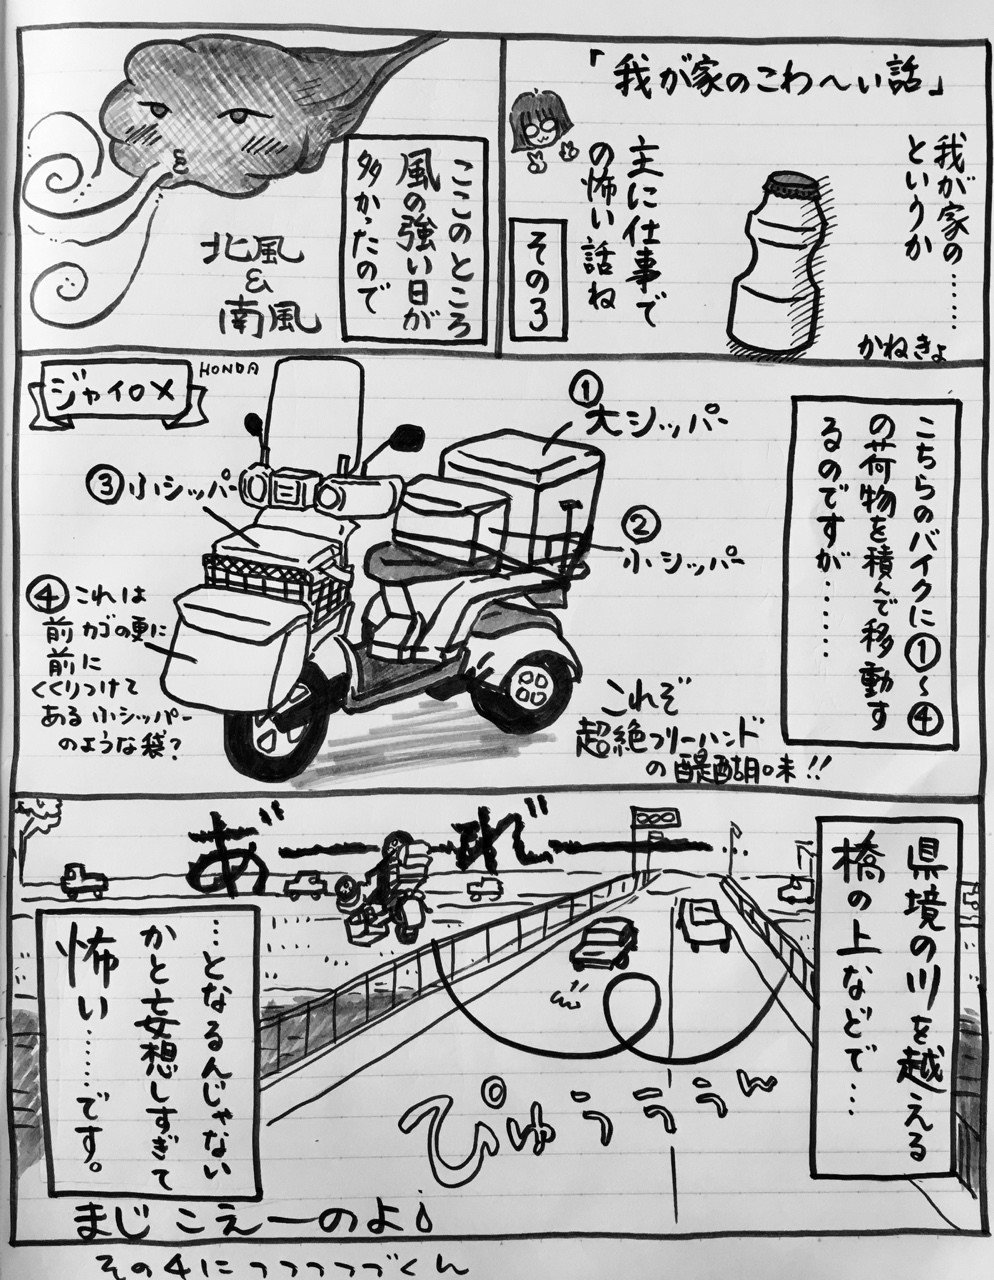 「我が家のこわ〜い話」
我が家の……
というか
主に仕事で
の怖い話ね
その3
かねきょ
ここのところ
風の強い日が
多かったので
北風
&
南風
ジャイロX
HONDA
こちらのバイクに①〜④
の荷物を積んで移動す
るのですが……
①
大シッパー
②
小シッパー
③小シッパー
④これは
前カゴの更に
前に
くくりつけて
ある小シッパー
のような袋?
これぞ
超絶フリーハンド
の醍醐味!!
県境の川を越える
橋の上などで…
あ゛ーれ゛ー
ぴゅぅぅぅん
…となるんじゃない
かと妄想しすぎて
怖い……です。
まじこえーのよ
その4につつつつづくん